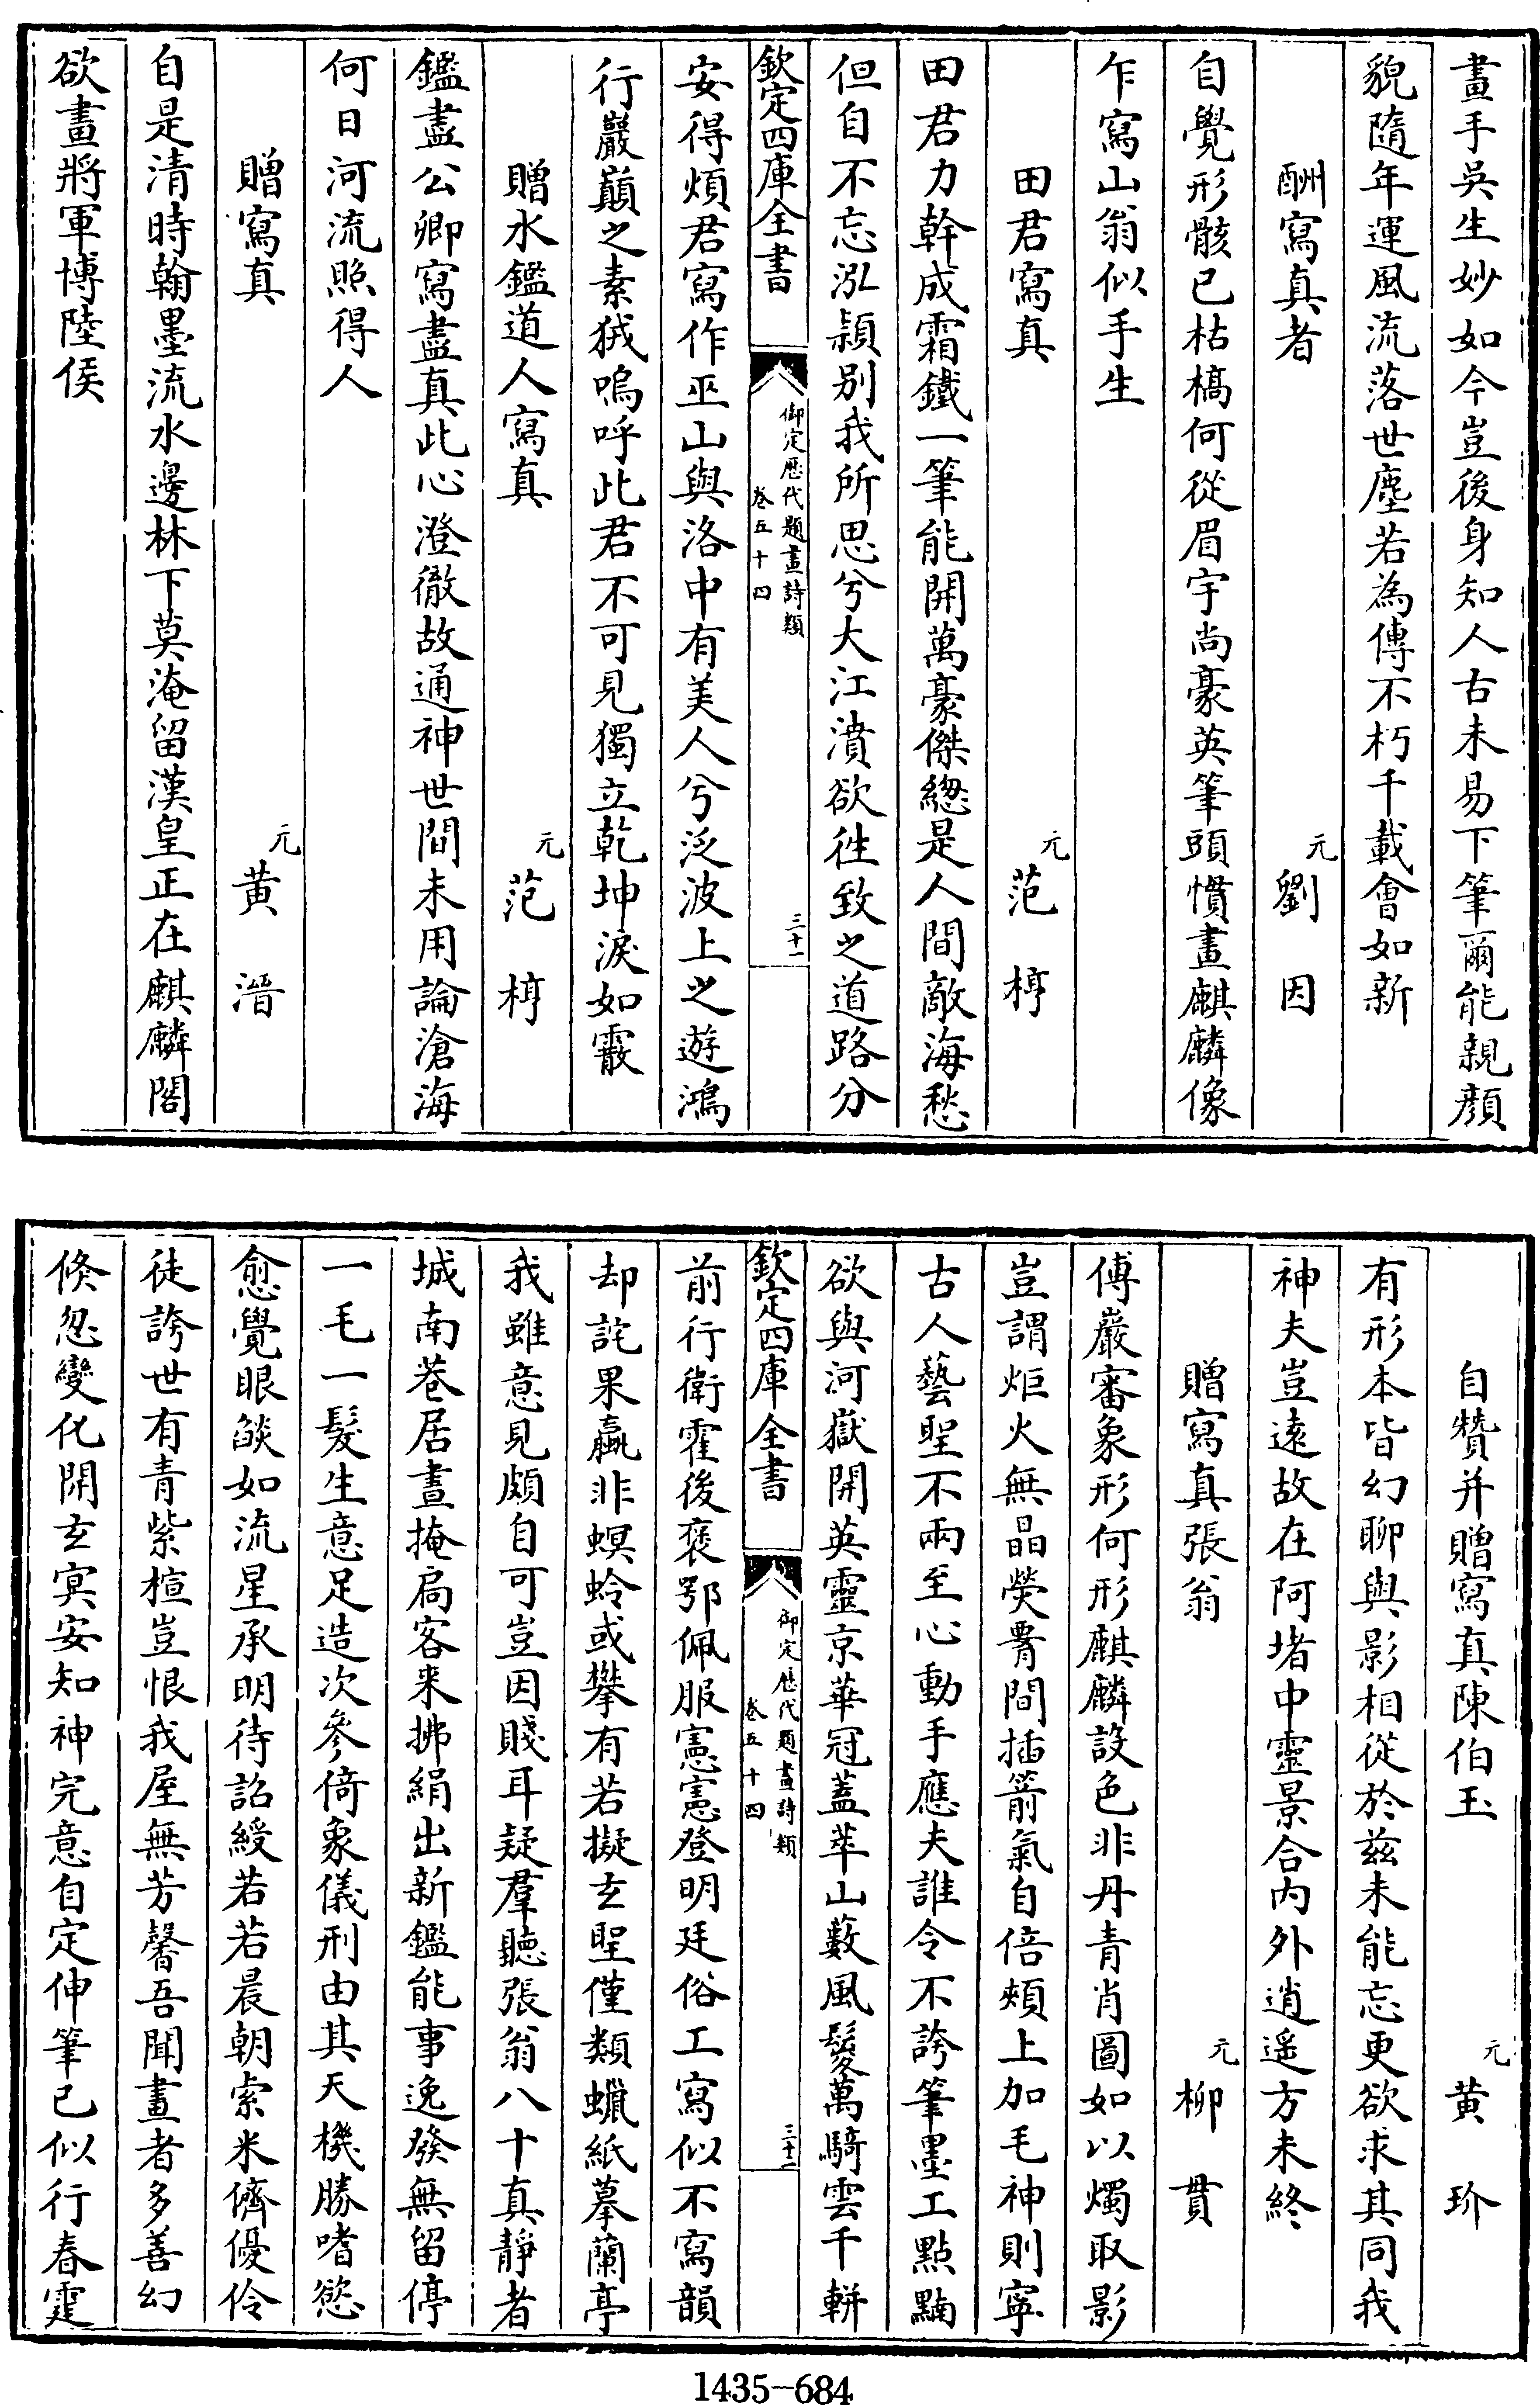 畫手吳生妙如今豈後身知人古未易下筆爾能親顔
貌隨年運風流落世塵若為傳不朽千載會如新
酬寫真者 元劉因
自覺形骸已枯槁何從眉宇尚豪英筆頭慣畫麒麟像
乍寫山翁似手生
田君寫真 元范梈
田君力幹成霜鐵一筆能開萬豪傑緫是人間敵海愁
但自不忘泓潁別我所思兮大江濆欲徃致之道路分
欽定四庫全書 御定歷代題畫詩類 卷五十四 三十一
安得煩君寫作巫山與洛中有美人兮泛波上之遊鴻
行巖巔之素狨嗚呼此君不可見獨立乾坤淚如霰
贈水鑑道人寫真 元范梈
鑑盡公卿寫盡真此心澄徹故通神世間未用論滄海
何日河流照得人
贈寫真 元黄溍
自是清時翰墨流水邊林下莫淹留漢皇正在麒麟閣
欲畫將軍博陸侯
自贊并贈寫真陳伯玉 元黄玠
有形本皆幻聊與影相從於兹未能忘更欲求其同我
神夫豈遠故在阿堵中靈景合内外逍遥方未終
贈寫真張翁 元柳貫
傅巖審象形何形麒麟設色非丹青肖圖如以燭取影
豈謂炬火無晶熒胷間插箭氣自倍頰上加毛神則寧
古人藝聖不兩至心動手應夫誰令不誇筆墨工點黼
欲與河嶽開英靈京華冠蓋萃山藪風鬉萬騎雲千軿
欽定四庫全書 御定歷代題畫詩類 卷五十四 三十二
前行衛霍後褒鄂佩服憲憲登明廷俗工寫似不寫韻
却詫果蠃非螟蛉或攀有若擬玄聖僅類蠟紙摹蘭亭
我雖意見頗自可豈因賤耳疑羣聽張翁八十真靜者
城南巷居晝掩扃客来拂絹出新鑑能事逸發無留停
一毛一髮生意足造次參倚象儀刑由其天機勝嗜慾
愈覺眼燄如流星承明待詔綬若若晨朝索米儕優伶
徒誇世有青紫楦豈恨我屋無芳馨吾聞畫者多善幻
倐忽變化開玄冥安知神完意自定伸筆已似行春霆
1435-684